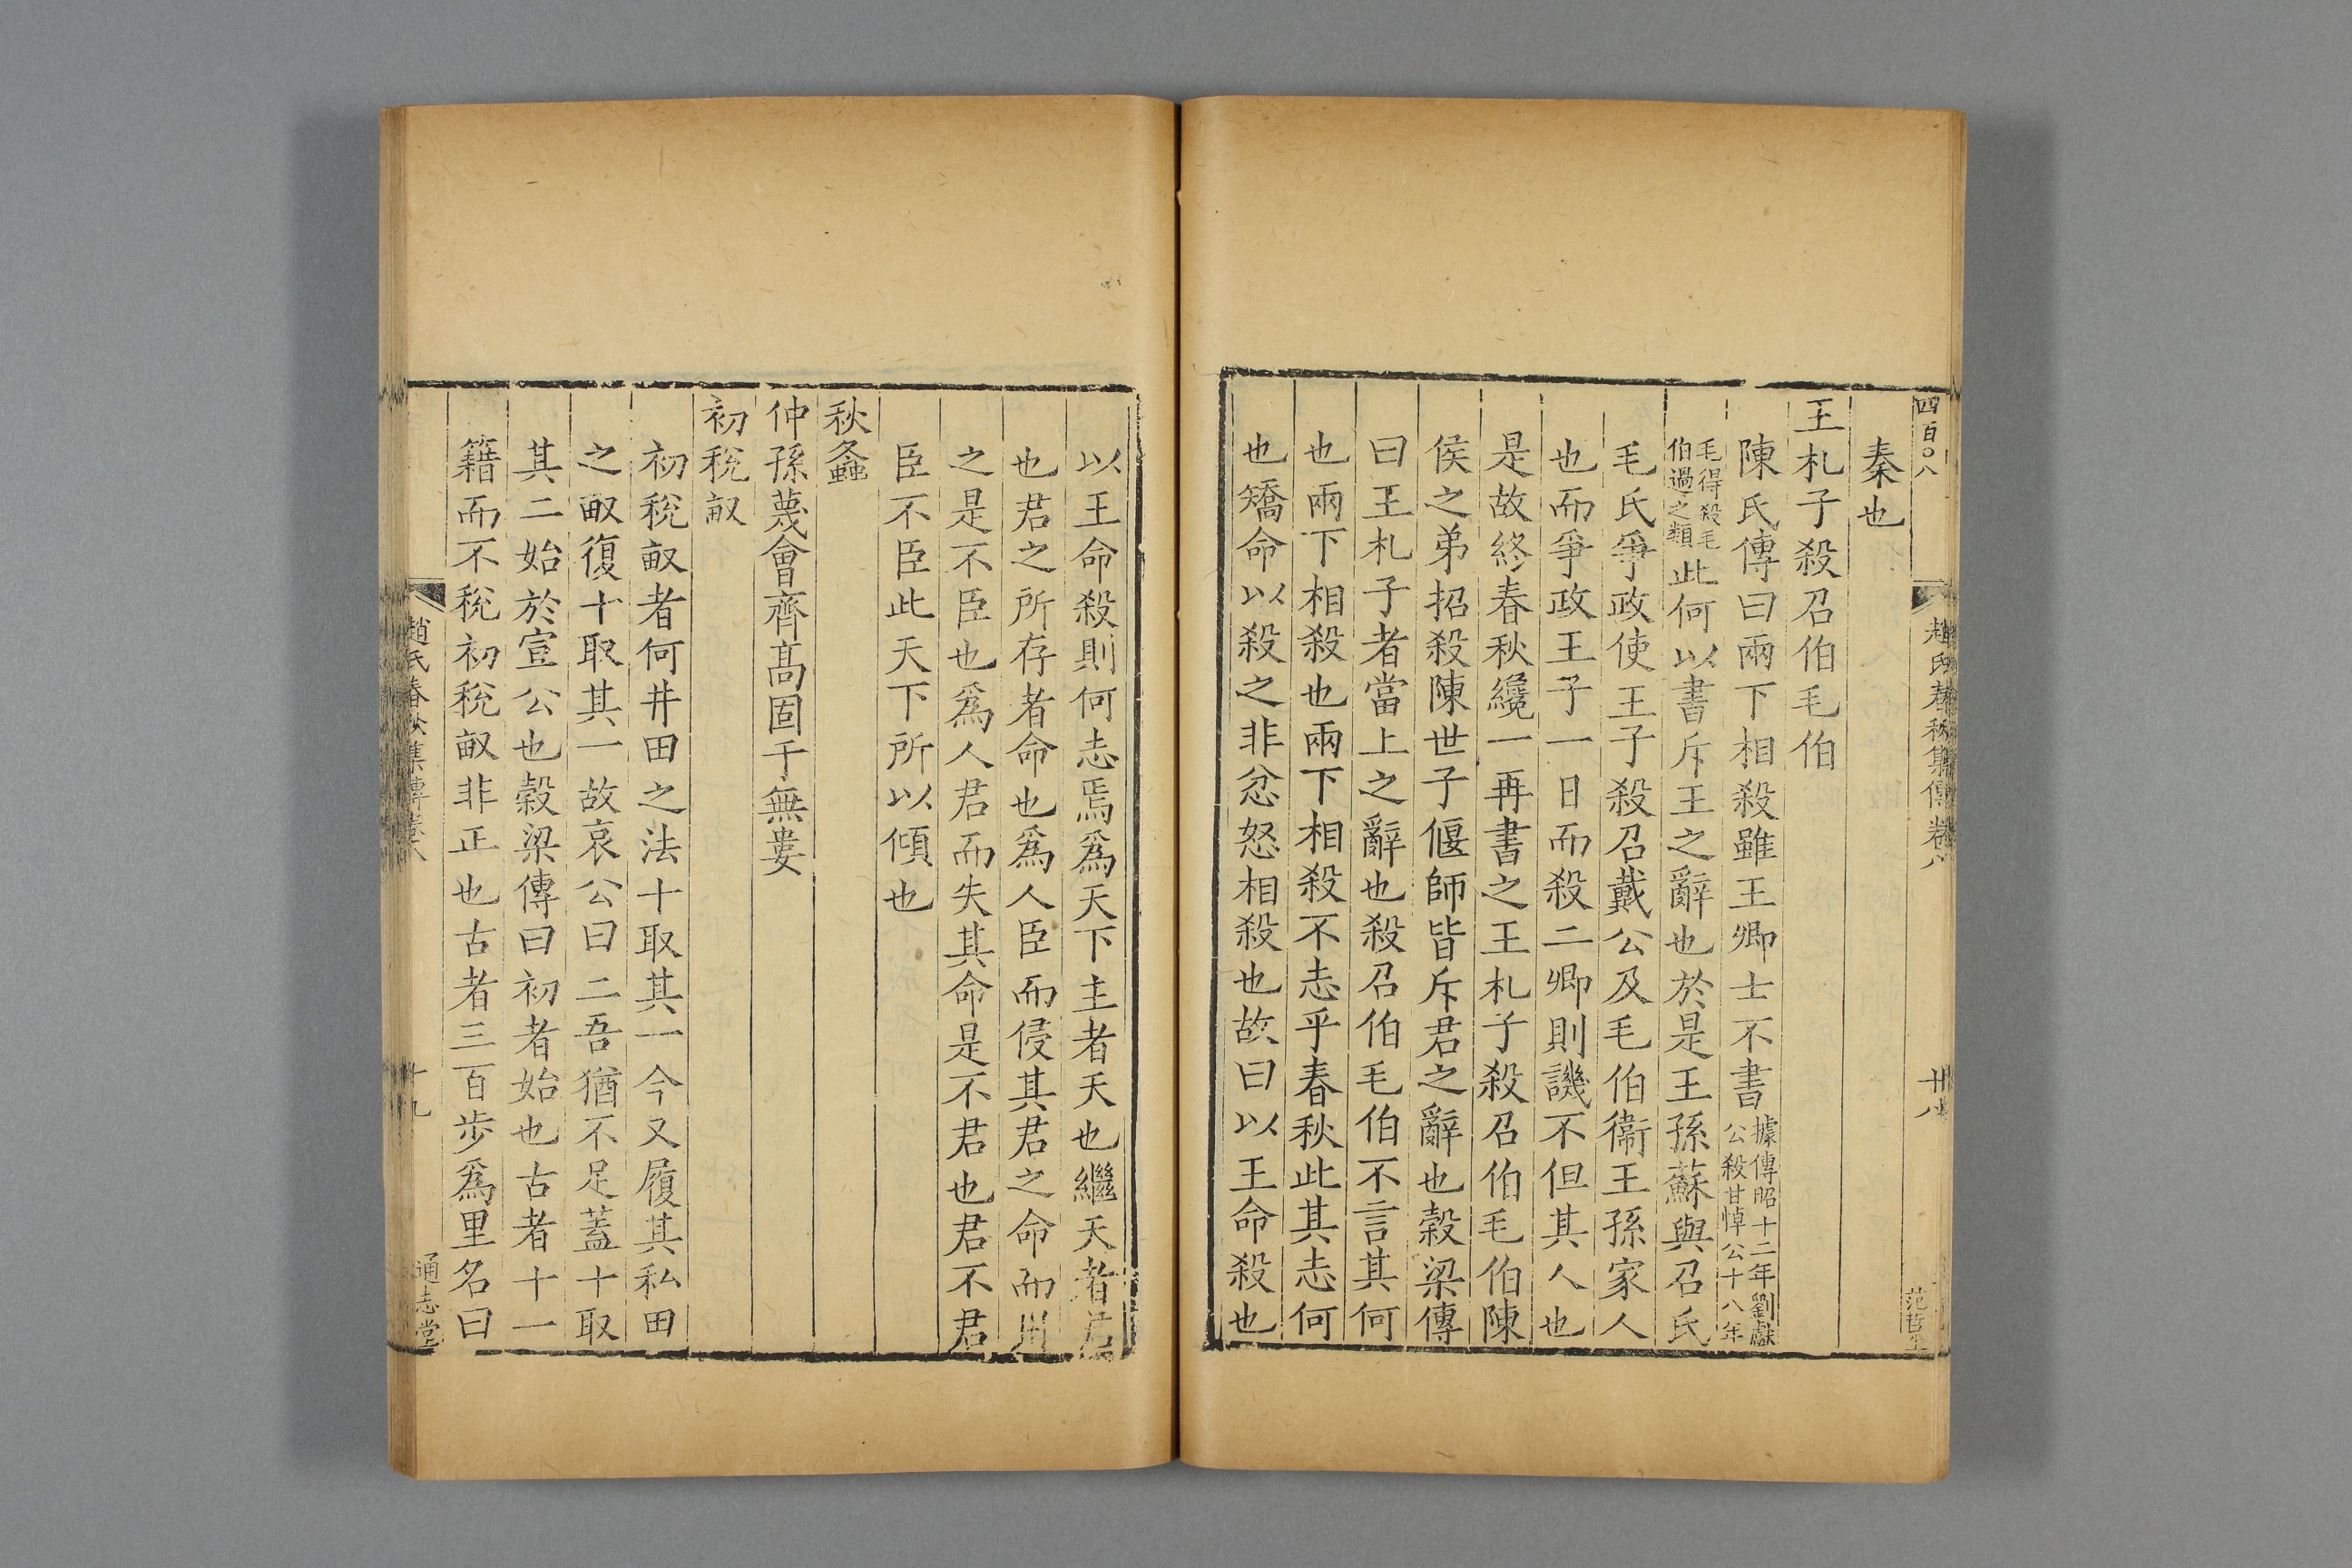 四百〇八
趙氏春秋集傳卷八
十八
秦也
王札子殺召伯毛伯
陳氏傳曰兩下相殺雖王卿士不書據傳昭十二年劉獻公殺甘悼公十八年
毛得殺毛伯過之類此何以書斥王之辭也於是王孫蘇與召氏
毛氏爭政使王子殺召戴公及毛伯衞王孫家人
也而爭政王子一日而殺二卿則譏不但其人也
是故終春秋纔一再書之王札子殺召伯毛伯陳
侯之弟招殺陳世子偃師皆斥君之辭也穀梁傳
曰王札子者當上之辭也殺召伯毛伯不言其何
也兩下相殺也兩下相殺不志乎春秋此其志何
也矯命以殺之非忿怒相殺也故曰以王命殺也
以王命殺則何志焉爲天下主者天也繼天者君
也君之所存者命也爲人臣而侵其君之命而用
之是不臣也爲人君而失其命是不君也君不君
臣不臣此天下所以傾也
秋螽
仲孫蔑會齊高固于無婁
初稅畝
初稅畝者何井田之法十取其一今又履其私田
之畝復十取其一故哀公曰二吾猶不足蓋十取
其二始於宣公也穀梁傳曰初者始也古者十一
籍而不稅初稅畝非正也古者三百步爲里名曰
趙氏春秋集傳卷八
十九
通志堂